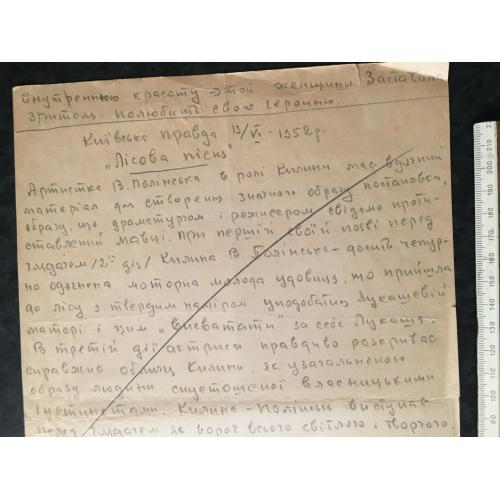 внутреннюю красоту этой женщины. Заставила
зрителя полюбить свою героиню.
Київська правда 13/VI - 1952р.
"Лісова пісня"
Артистка В. Полінська в ролі Килини має вдячний
матеріал для створення значного образу постановки,
образу, що драматургом і режисером свідомо проти-
ставлений Мавці. При першій своїй появі перед
глядачем /2га дія/ Килина В. Полінська - досить чепур-
но одягнена моторна молода удовиця, що прийшла
до лісу з твердим наміром уподобатись Лукашевій
матері і цим "висватати" за себе Лукаша.
В третій дії актриса правдиво розкриває
справжнє обличчя Килини, як узагальненого
образу людини спустошеної власницькими
інстинктами. Килина - Полінська виступає
перед глядачем як ворог всього світлого і творчого.